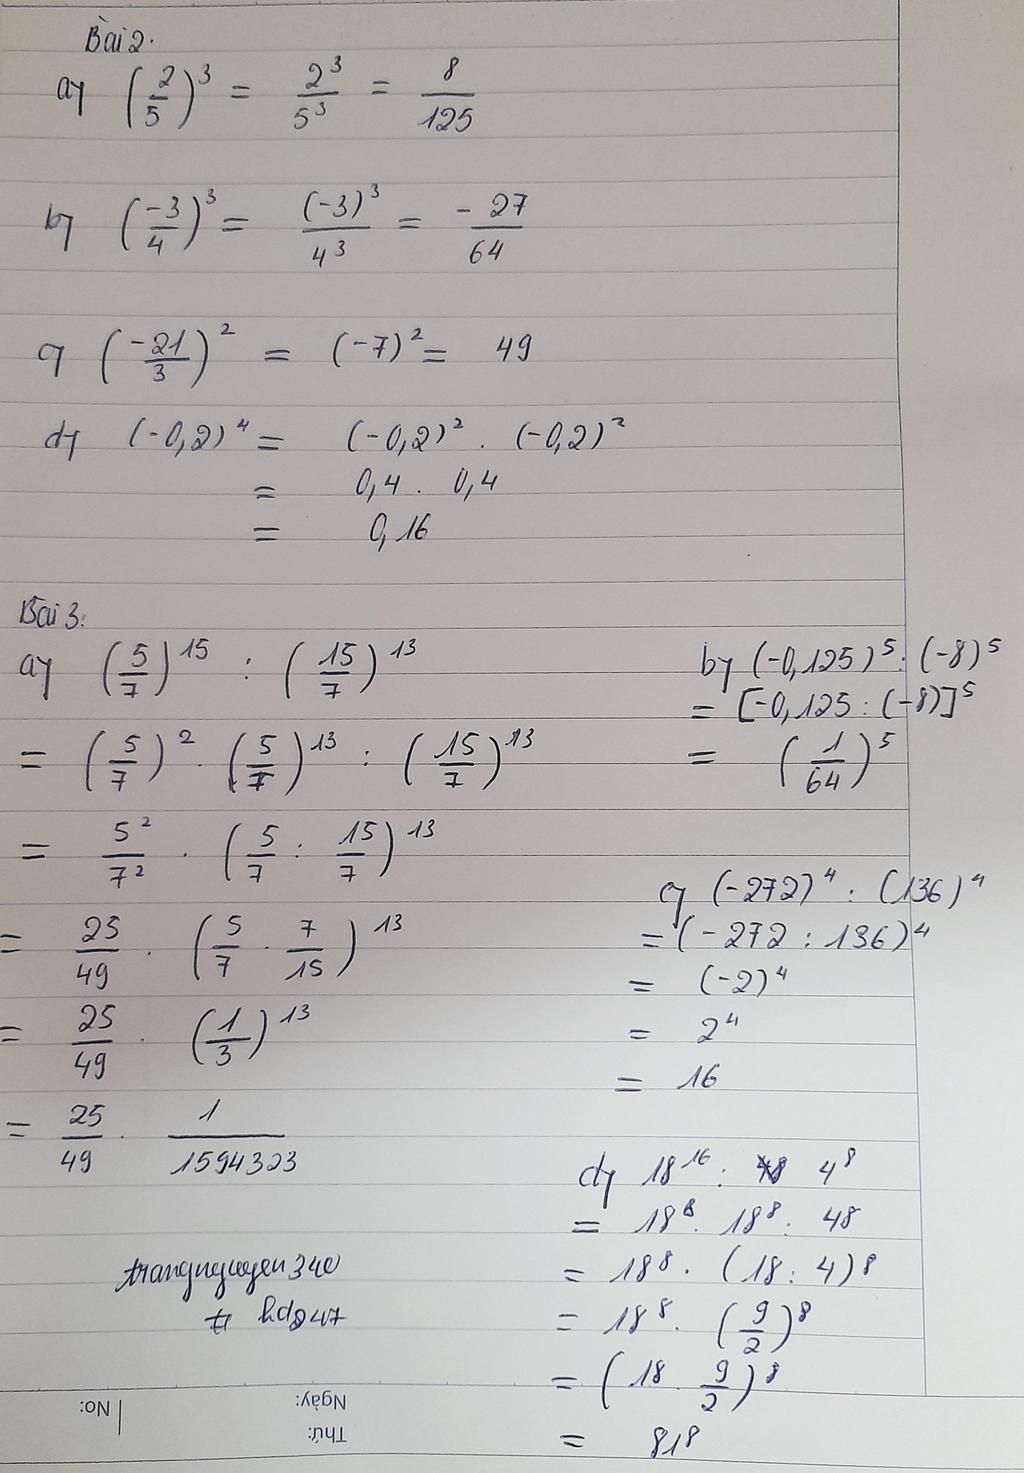 Bài 2.
a) (2/5)^3 = 2^3/5^3 = 8/125
b) (-3/4)^3 = (-3)^3/4^3 = -27/64
c) (-21/3)^2 = (-7)^2 = 49
d) (-0,2)^4 = (-0,2)^2 . (-0,2)^2
= 0,4 . 0,4
= 0,16
Bài 3:
a) (5/7)^15 : (15/7)^13
= (5/7)^2 . (5/7)^13 : (15/7)^13
= 5^2/7^2 . (5/7 : 15/7)^13
= 25/49 . (5/7 . 7/15)^13
= 25/49 . (1/3)^13
= 25/49 . 1/1594323
b) (-0,125)^5 : (-8)^5
= [-0,125 : (-8)]^5
= (1/64)^5
c) (-272)^4 : (136)^4
= (-272 : 136)^4
= (-2)^4
= 2^4
= 16
d) 18^16 : 4^8
= 18^8 . 18^8 : 48
= 18^8 . (18 : 4)^8
= 18^8 . (9/2)^8
= (18 . 9/2)^8
= 81^8
trangnguyen340
Thứ:
Ngày:
No: